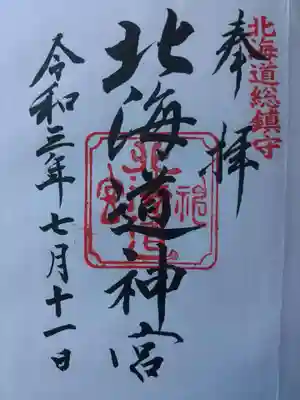 北海道総鎮守
奉拝
北海道神宮
令和三年七月十一日